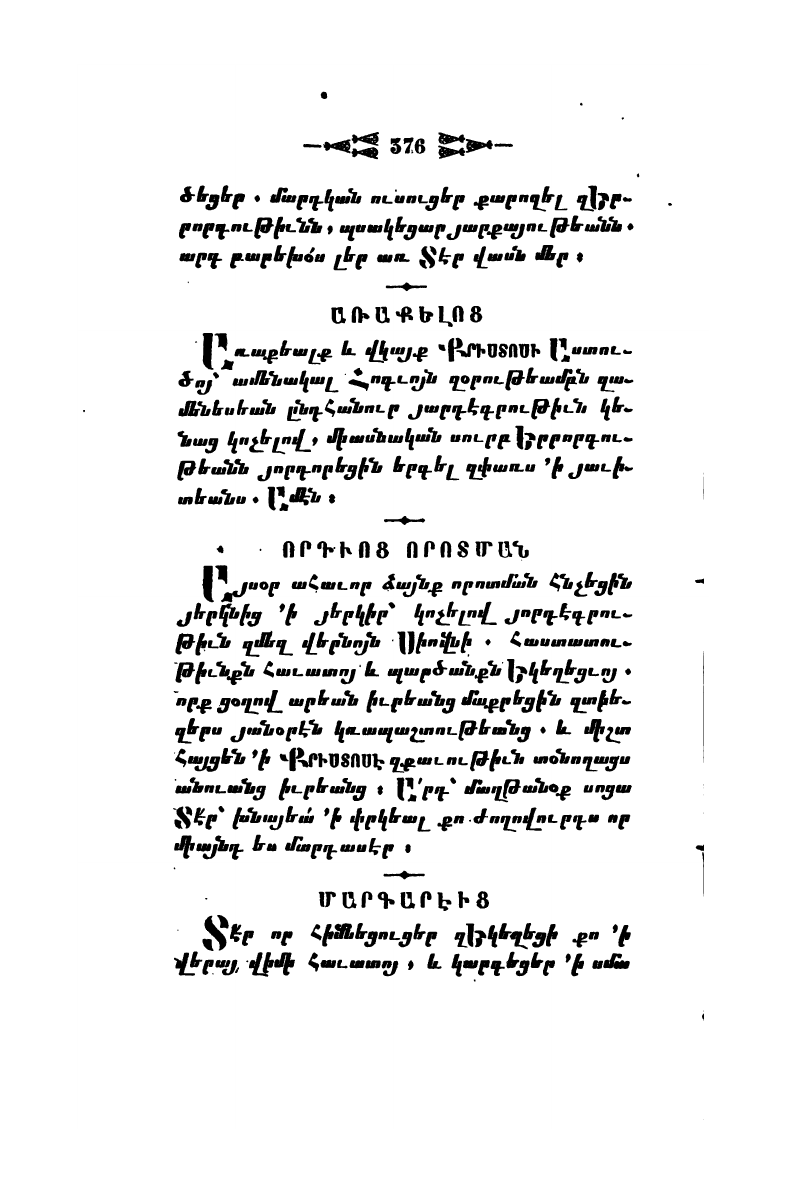 376
ծեցեր . մարդկան ուսուցեր քարոզել զԵրր-
րորդութիւնն , պսակեցար յարքայութեանն .
արդ բարեխօս լեր առ Տէր վասն մեր ։
ԱՌԱՔԵԼՈՑ
Առաքեալք և վկայք ՔՐԻՍՏՈՍԻ Աստու-
ծոյ՝ ամենակալ Հոգւոյն զօրութեամբն զա-
մենեսեան ընդհանուր յարդէգրութիւն կե-
նաց կոչելով , միասնական սուրբ Երրորդու-
թեանն յորդորեցին երգել զփառս ՚ի յաւի-
տեանս . Ամէն ։
ՈՐԴԻՈՑ ՈՐՈՏՄԱՆ
Այսօր ահաւոր ձայնք որոտման հնչեցին
յերկնից ՚ի յերկիր՝ կոչելով յորդէգրու-
թիւն զմեզ վերնոյն Սիովնի . Հաստատու-
թիւնքն հաւատոյ և պարծանքն Եկեղեցւոյ .
որք ցօղով արեան իւրեանց մաքրեցին զտիե-
զերս յանօրէն կռապաշտութեանց . և միշտ
հայցեն ՚ի ՔՐԻՍՏՈՍԷ զքաւութիւն տօնողացս
անուանց իւրեանց ։ Ա՛րդ՝ մաղթանօք սոցա
Տէր՝ խնայեա՛ ՚ի փրկեալ քո ժողովուրդս որ
միայնդ ես մարդասէր ։
ՄԱՐԳԱՐԷԻՑ
Տէր որ հիմնեցուցեր զԵկեղեցի քո ՚ի
վերայ վիմի հաւատոյ , և կարգեցեր ՚ի սմա